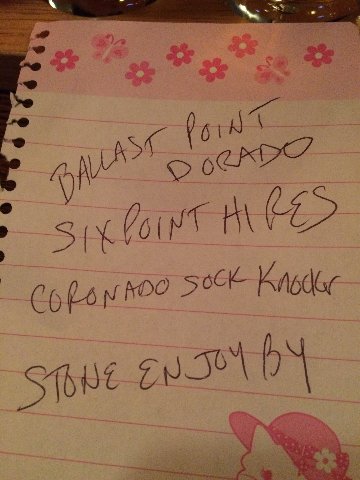 BALLAST POINT
DORADO
SIXPOINT HI RES
CORONADO SOCK Knocker
STONE ENJOY BY